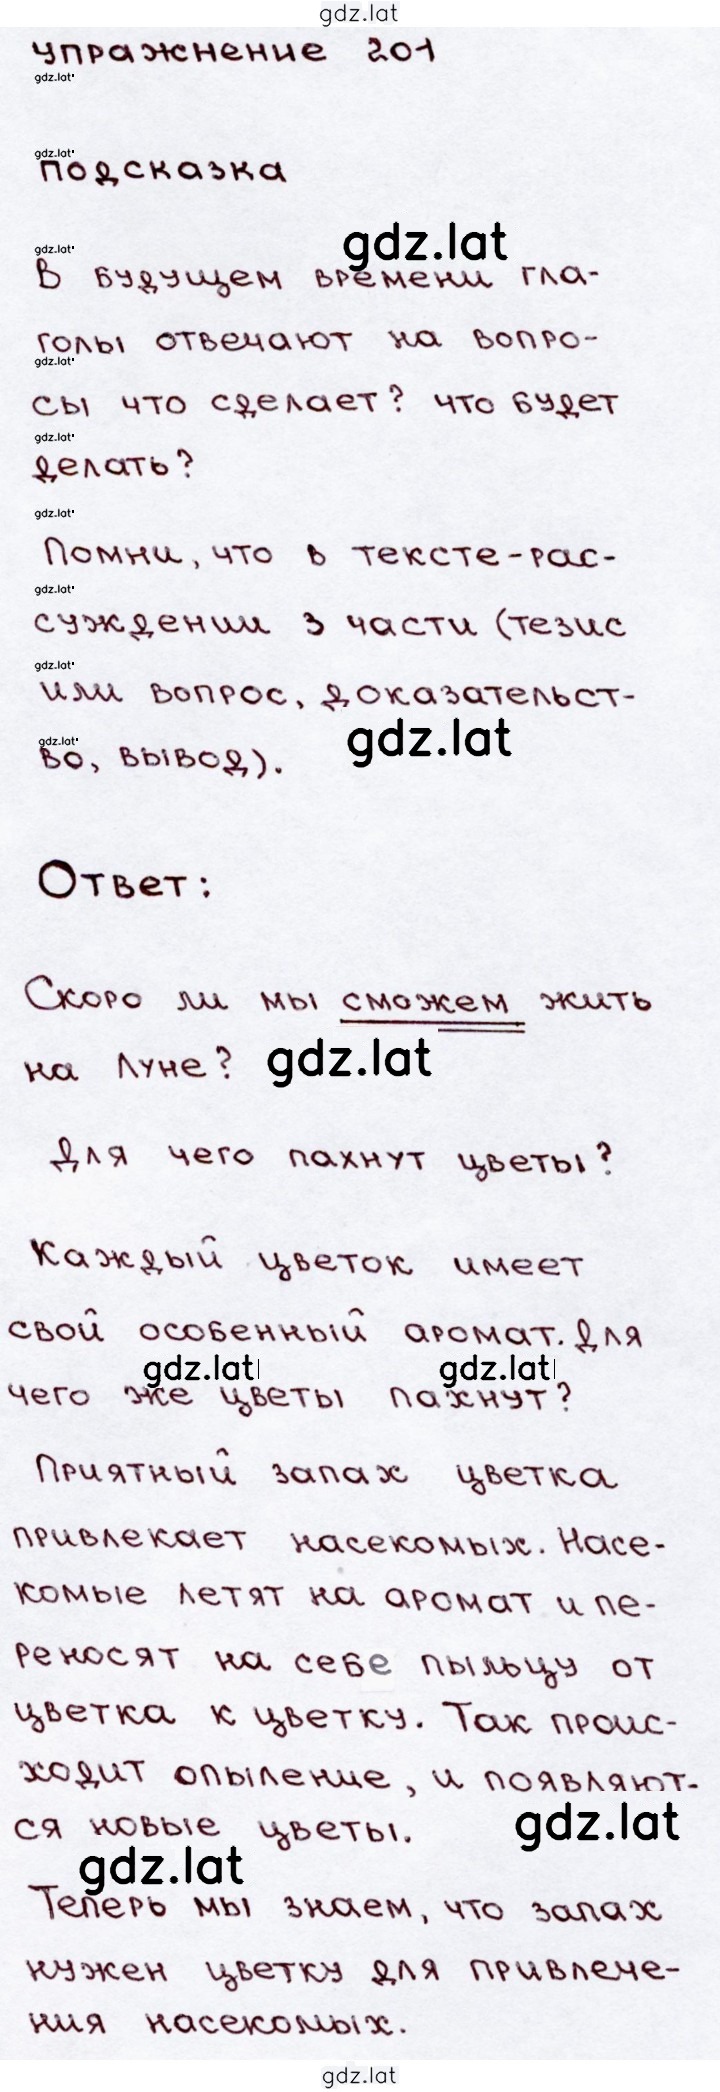 gdz.lat
упражнение 201
gdz.lat
gdz.lat
подсказка
gdz.lat
gdz.lat
В будущем времени гла-
голы отвечают на вопро-
gdz.lat
сы что сделает? что будет
gdz.lat
делать?
gdz.lat
Помни, что в тексте-рас-
gdz.lat
суждении 3 части (тезис
gdz.lat
или вопрос, доказательст-
gdz.lat
gdz.lat
во, вывод).
Ответ:
Скоро ли мы сможем жить
на Луне?
gdz.lat
Для чего пахнут цветы?
Каждый цветок имеет
свой особенный аромат. Для
gdz.lat
gdz.lat
чего же цветы пахнут?
Приятный запах цветка
привлекает насекомых. Насе-
комые летят на аромат и пе-
реносят на себе пыльцу от
цветка к цветку. Так проис-
ходит опыление, и появляют-
ся новые цветы.
gdz.lat
gdz.lat
Теперь мы знаем, что запах
нужен цветку для привлече-
ния насекомых.
gdz.lat